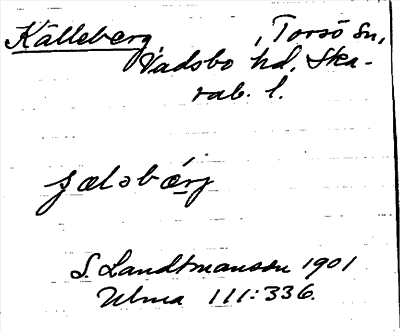 Källeberg, Torsö sn,
Vadsbo hd, Ska-
rab. l.
S. Landtmanson 1901
Ulma 111:336.